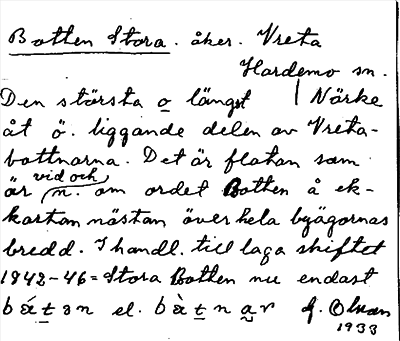 Botten Stora. åker. Vreta
Hardemo sn.
Den största o längst | Närke
åt ö. liggande delen av Vreta-
bottnarna. Det är flatan som
är vid och n. om ordet Botten å ek-
kartan nästan över hela byägornas
bredd. I handl. till laga skiftet
1942-46 = Stora Botten nu endast
el.
1933